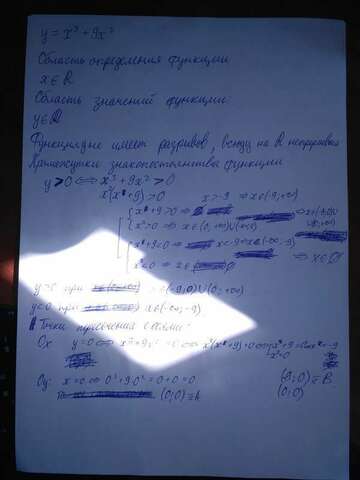 y = x³ + 9x²
Область определения функции
x ∈ R
Область значений функции
y ∈ R
Функция не имеет разрывов, всюду на R непрерывна
Промежутки знакопостоянства функции
y > 0 ⟺ x³ + 9x² > 0
x²(x+9) > 0 x > -9 ⇒ x ∈ (-9; +∞)
x+9 > 0 ⇒
x² > 0 ⇒ x ∈ (-∞; 0) ∪ (0; +∞)
x+9 < 0 ⇒ x < -9 x ∈ (-∞; -9)
x² < 0 ⇒ x ∈ ∅ ⇒ x ∈ ∅
y > 0 при x ∈ (-9; 0) ∪ (0; +∞)
y < 0 при x ∈ (-∞; -9)
Точки пересечения с осями:
Ox: y = 0 ⟺ x³ + 9x² = 0 ⟺ x²(x+9) = 0 ⟺ x+9 = 0 x = -9
x² = 0
Oy: x = 0 0³ + 9·0² = 0 + 0 = 0 (-9; 0) ≡ B
(0; 0) ≡ A (0; 0)